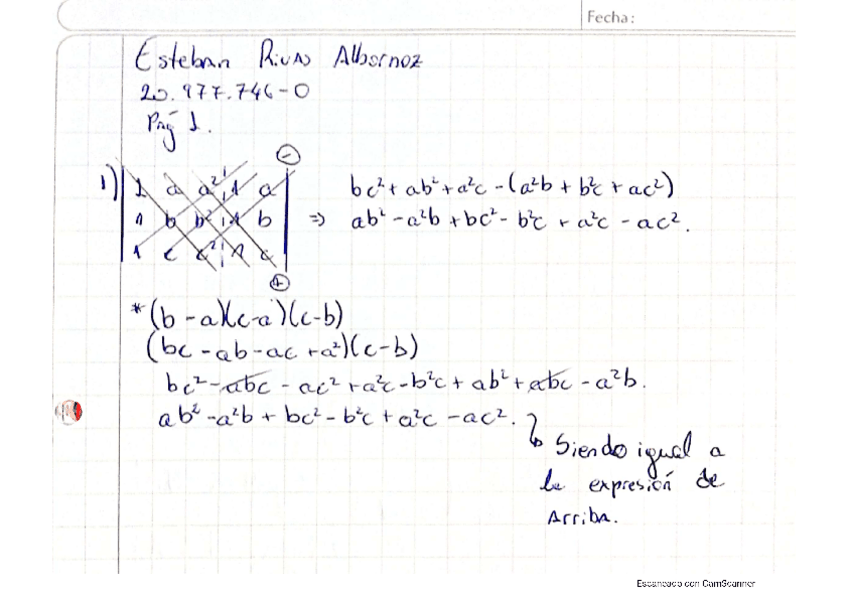 Fecha:
Esteban Rivas Albornoz
20.977.746-0
Pág 1.
1) | 1 a a² 1 a |
| 1 b b² 1 b | => bc² + ab² + a²c - (a²b + b²c + ac²)
| 1 c c² 1 c | ab² - a²b + bc² - b²c + a²c - ac².
* (b - a)(c-a)(c-b)
(bc - ab - ac + a²)(c-b)
bc² - abc - ac² + a²c - b²c + ab² + abc - a²b.
ab² - a²b + bc² - b²c + a²c - ac².
↳ Siendo igual a
la expresión de
Arriba.
Escaneado con CamScanner